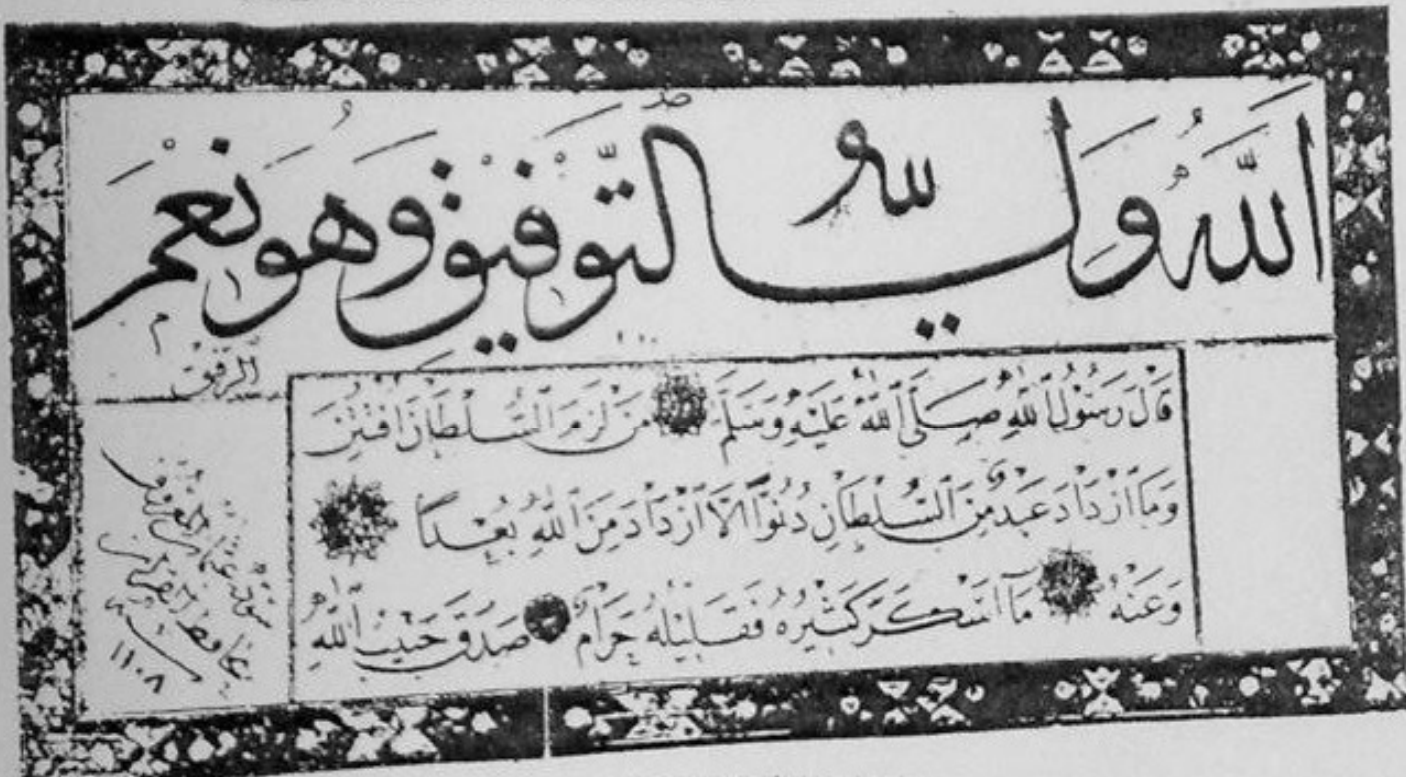 اَللّٰهُ وَلِيُّ التَّوْفِيقِ وَهُوَ نِعْمَ
الرفيق
قَالَ رَسُوْلُ اللّٰهِ صَلَّى اللّٰهُ عَلَيْهِ وَسَلَّمَ مَنْ لَزِمَ السُّلْطَانَ افْتُتِنَ
وَمَا ازْدَادَ عَبْدٌ مِنَ السُّلْطَانِ دُنُوًّا اِلَّا ازْدَادَ مِنَ اللّٰهِ بُعْدًا
وَعَنْهُ مَا اَسْكَرَ كَثِيْرُهُ فَقَلِيْلُهُ حَرَامٌ صَدَقَ حَبِيْبُ اللّٰهِ
سوده عثمان المعروف
بحافظ القرآن
سنه
١١٠٨